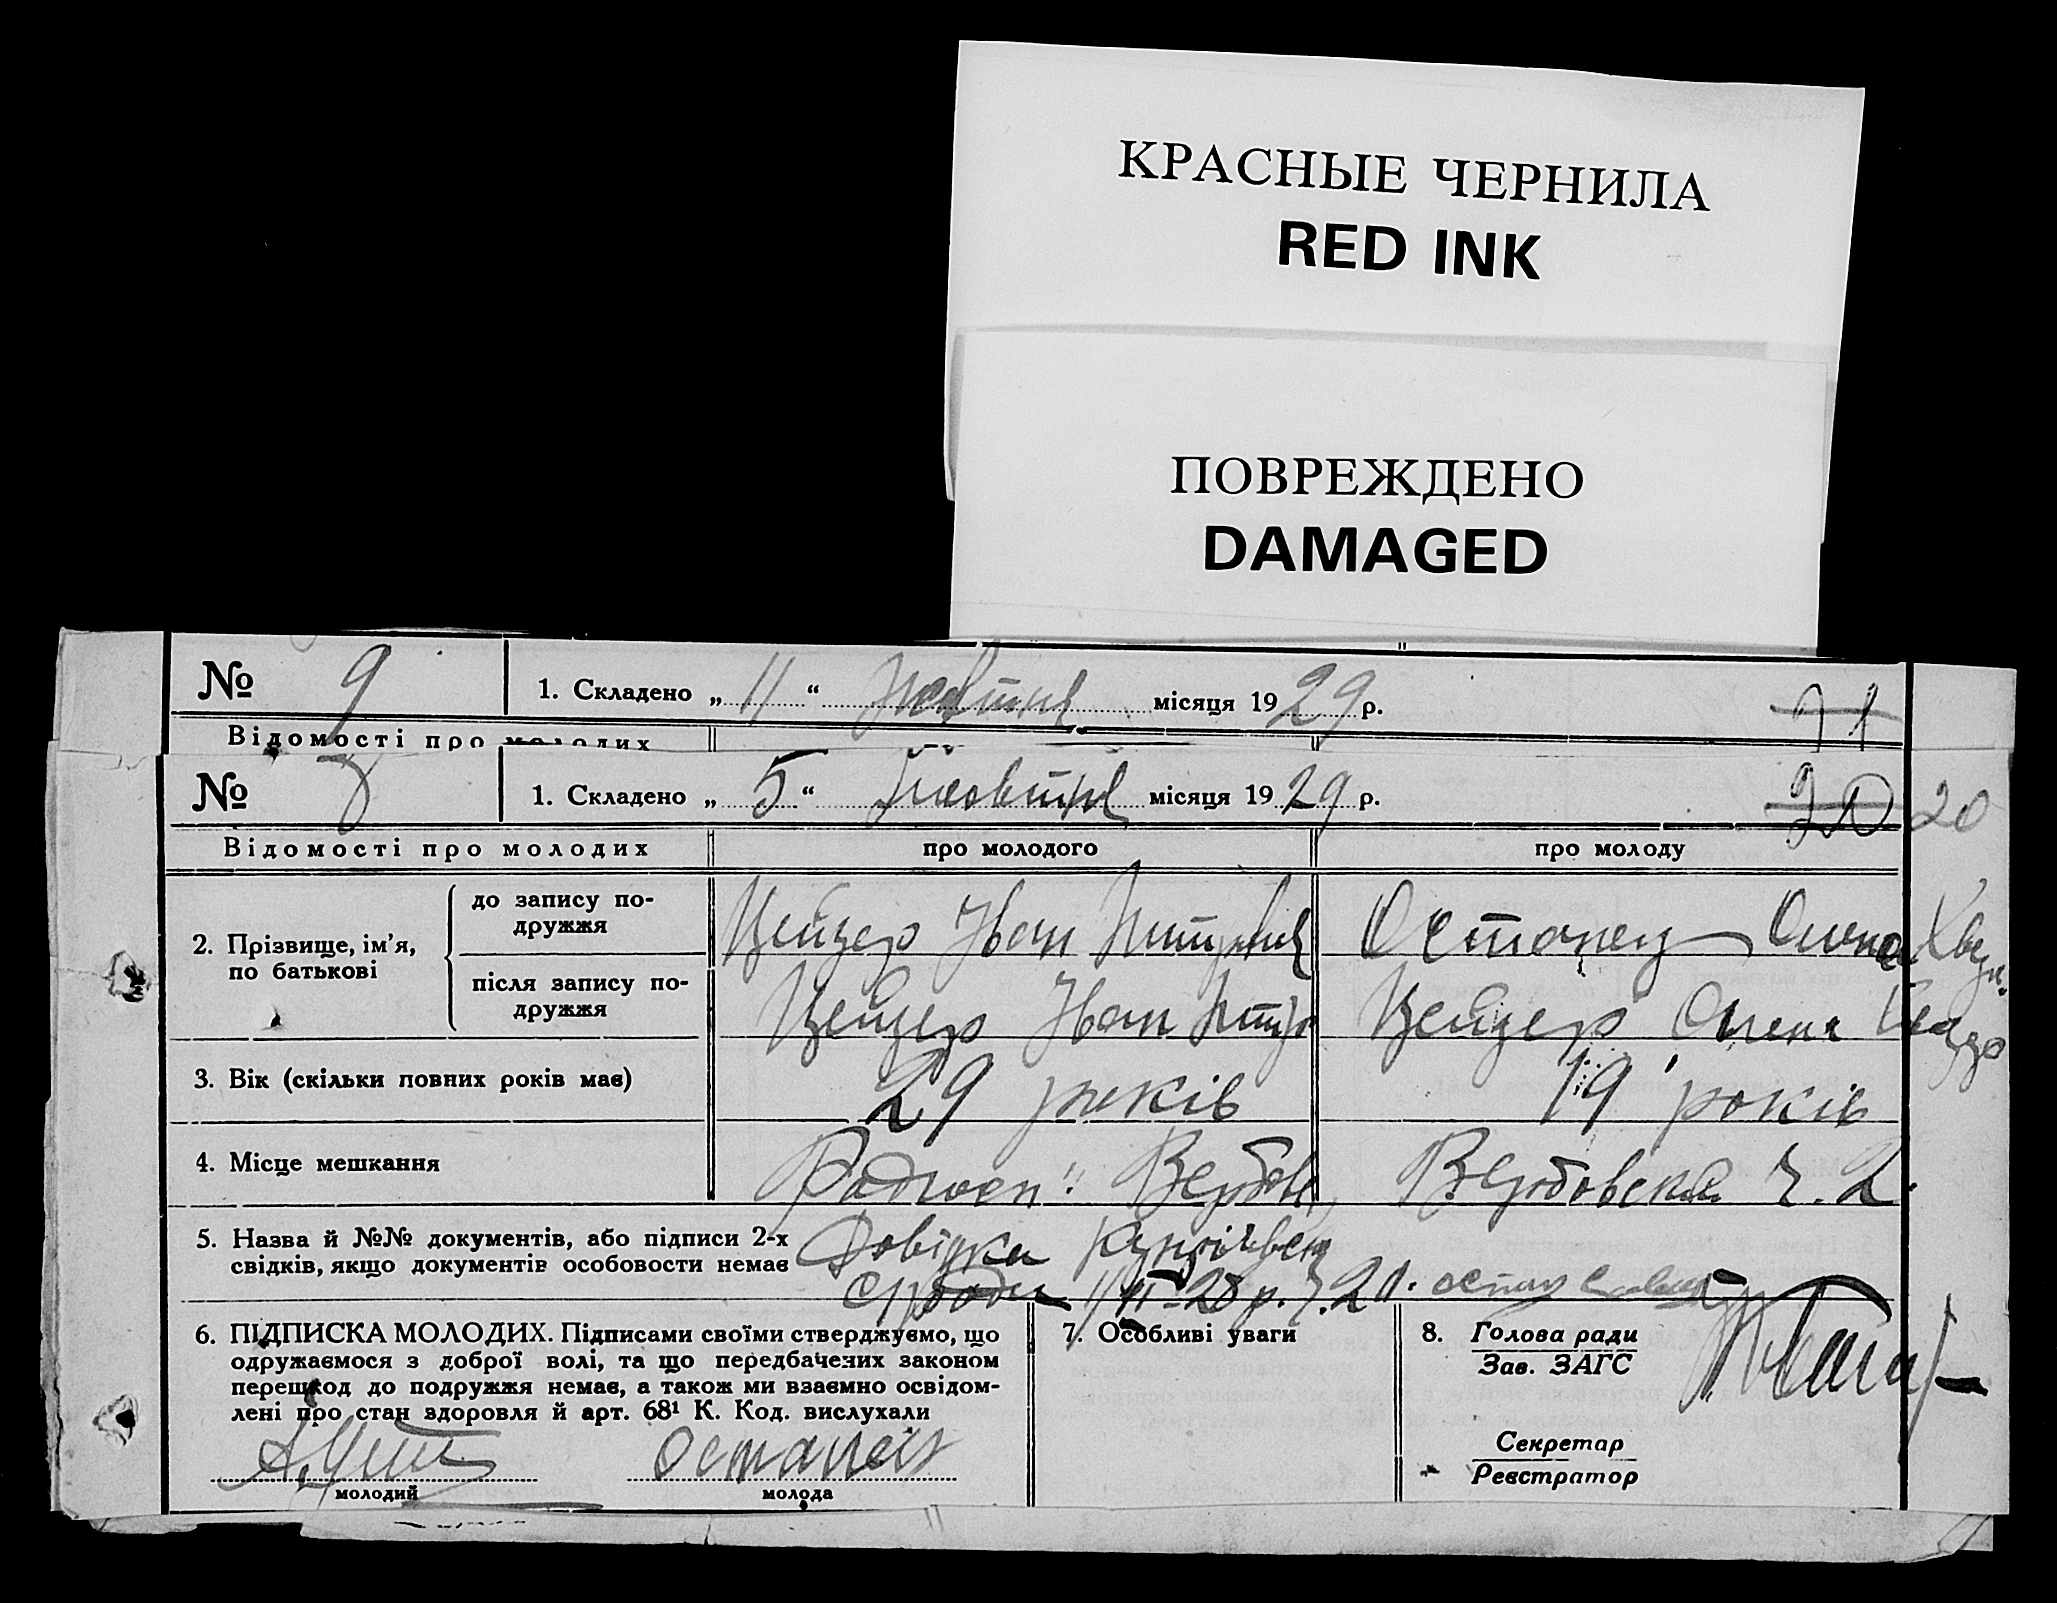 КРАСНЫЕ ЧЕРНИЛА
RED INK
ПОВРЕЖДЕНО
DAMAGED
№ 9 1. Складено „ 11 “ Жовтня місяця 1929 р. 21
Відомості про молодих
№ 8 1. Складено „ 5 “ Жовтня місяця 1929 р. 20 20
Відомості про молодих про молодого про молоду
2. Прізвище, ім’я, по батькові
до запису по-
дружжя
Цейцер Іван Остапец Олена
після запису по-
дружжя
Цейцер Іван Цейцер Олена
3. Вік (скільки повних років має) 29 років 19 років
4. Місце мешкання Вербовская ч. 2.
5. Назва й №№ документів, або підписи 2-х Довідка
свідків, якщо документів особовости немає
6. ПІДПИСКА МОЛОДИХ. Підписами своїми стверджуємо, що
одружаємося з доброї волі, та що передбачених законом
перешкод до подружжя немає, а також ми взаємно освідом-
лені про стан здоровля й арт. 68¹ К. Код. вислухали
молодий молода
7. Особливі уваги
8. Голова ради
Зав. ЗАГС
Секретар
Реєстратор